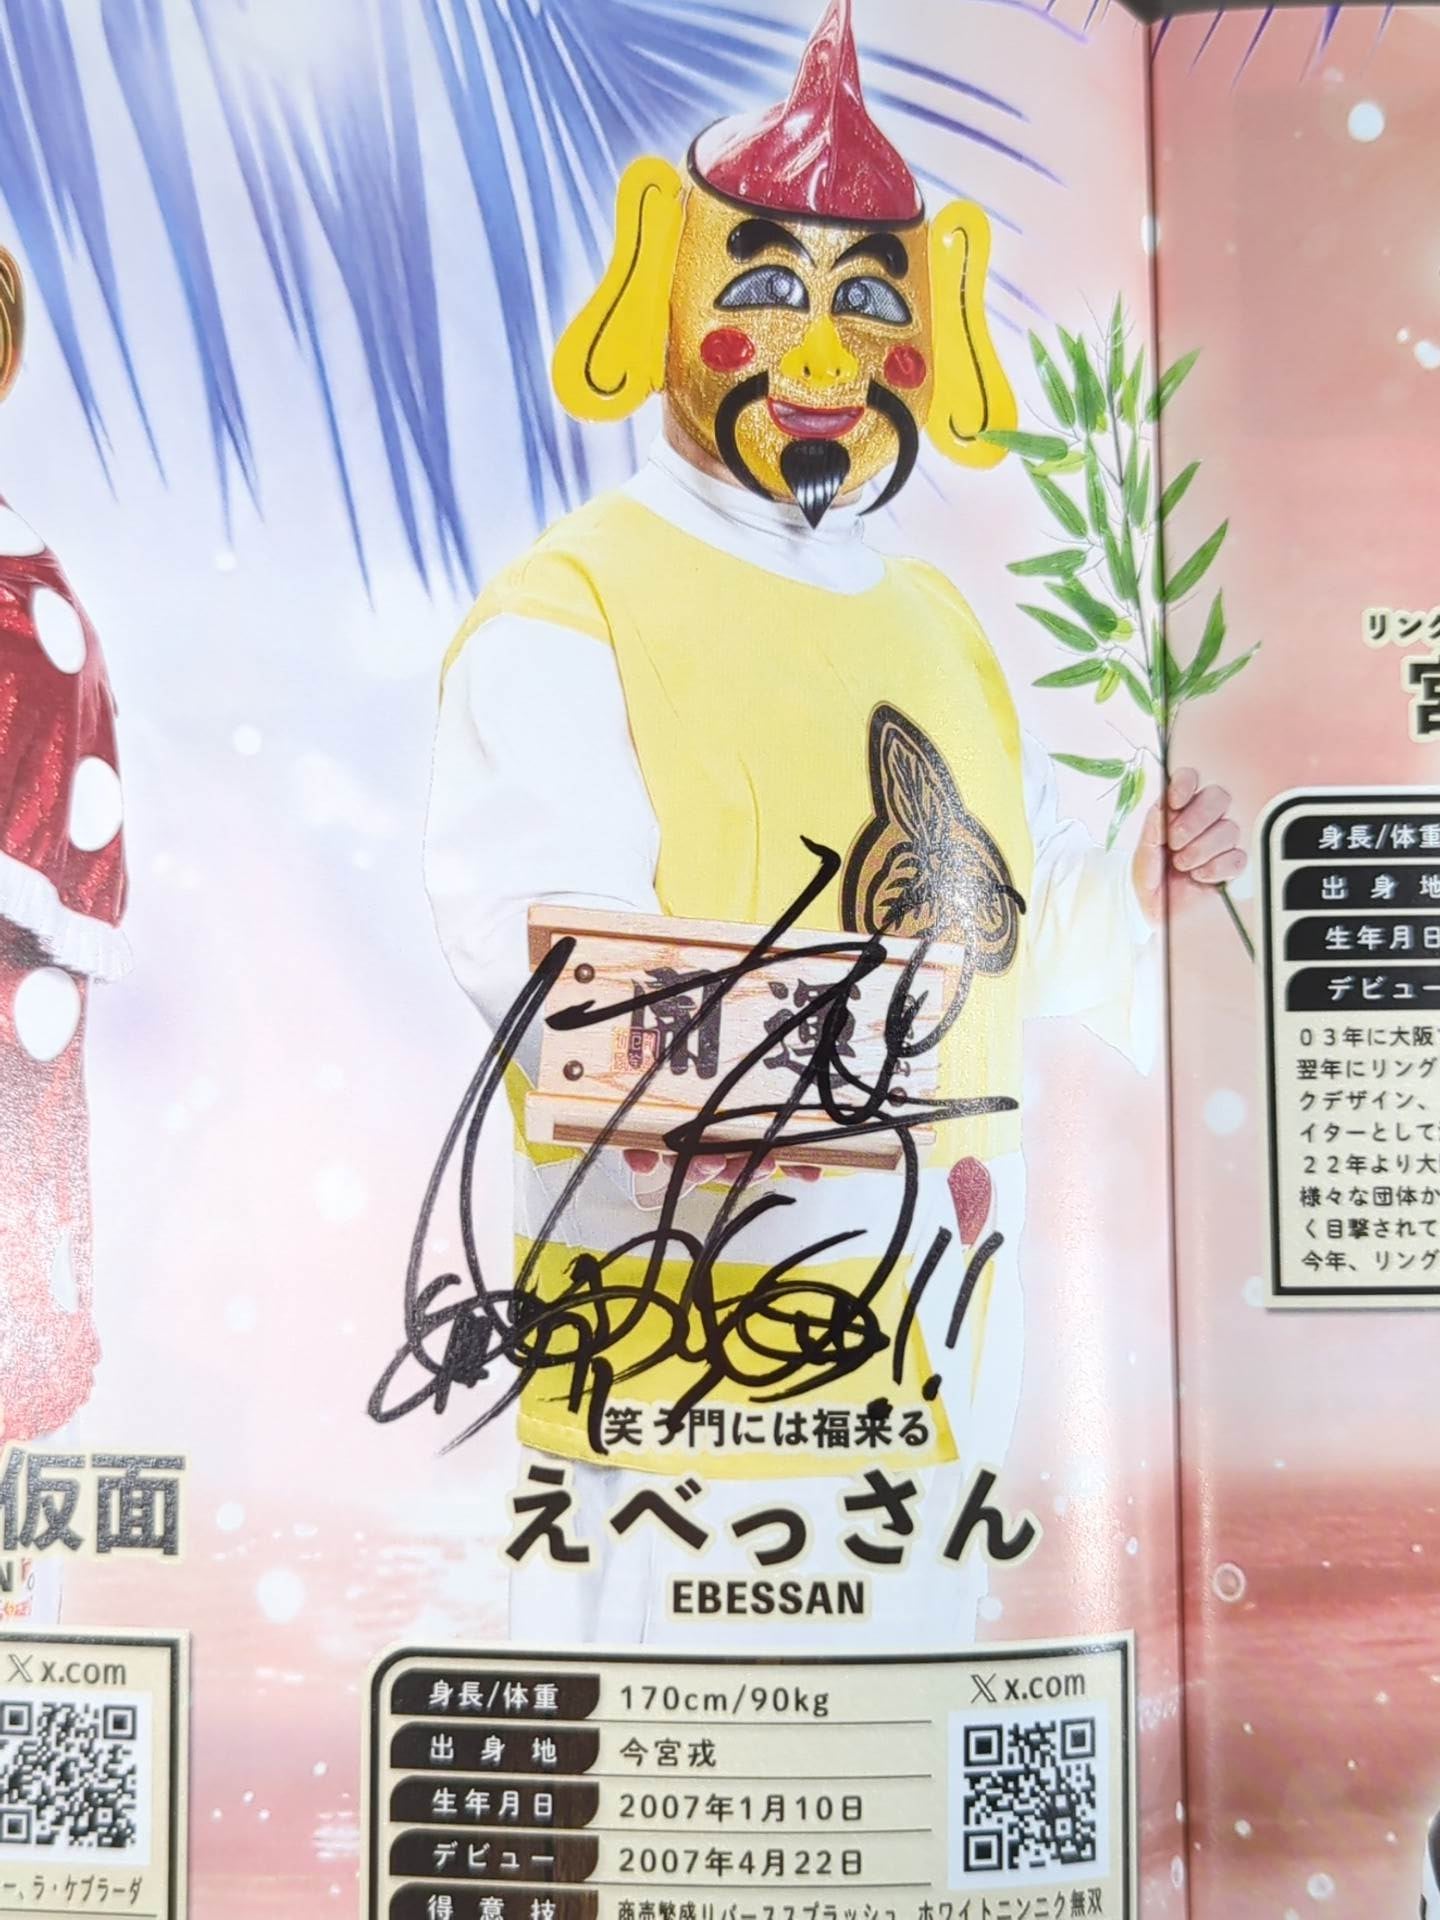 開運
笑う門には福来る
えべっさん
EBESSAN
仮面
x.com
身長/体重 170cm/90kg
x.com
出身地 今宮戎
生年月日 2007年1月10日
デビュー 2007年4月22日
得意技 商売繁盛リバーススプラッシュ、ホワイトニンニク無双
ー、ラ・ケブラーダ
リング
宮
身長/体重
出身地
生年月日
デビュー
03年に大阪
翌年にリング
クデザイン、
イターとして
22年より大
様々な団体か
く目撃されて
今年、リング